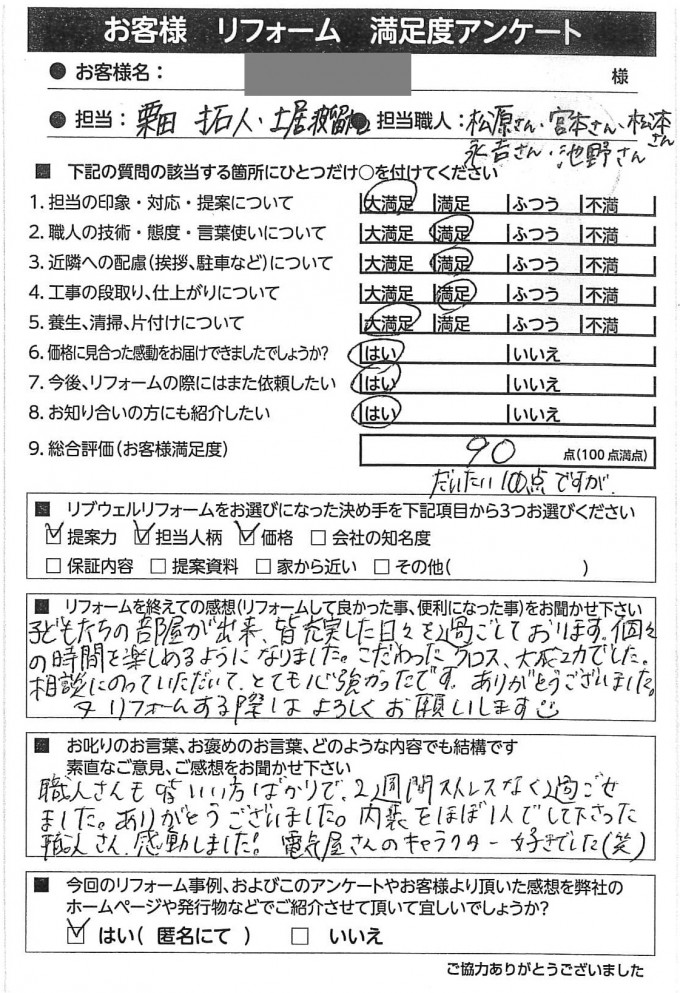 お客様 リフォーム 満足度アンケート
● お客様名： 様
● 担当：栗田 拓人・土居 ● 担当職人：松原さん・宮本さん・松本さん
永吉さん・池野さん
■ 下記の質問の該当する箇所にひとつだけ○を付けてください
1. 担当の印象・対応・提案について 大満足 満足 ふつう 不満
2. 職人の技術・態度・言葉使いについて 大満足 満足 ふつう 不満
3. 近隣への配慮(挨拶、駐車など)について 大満足 満足 ふつう 不満
4. 工事の段取り、仕上がりについて 大満足 満足 ふつう 不満
5. 養生、清掃、片付けについて 大満足 満足 ふつう 不満
6. 価格に見合った感動をお届けできましたでしょうか? はい いいえ
7. 今後、リフォームの際にはまた依頼したい はい いいえ
8. お知り合いの方にも紹介したい はい いいえ
9. 総合評価(お客様満足度) 90 点(100点満点)
だいたい100点ですが
■ リブウェルリフォームをお選びになった決め手を下記項目から3つお選びください
☑ 提案力 ☑ 担当人柄 ☑ 価格 □ 会社の知名度
□ 保証内容 □ 提案資料 □ 家から近い □ その他( )
■ リフォームを終えての感想(リフォームして良かった事、便利になった事)をお聞かせ下さい
子どもたちの部屋が出来、皆充実した日々を過ごしております。個々
の時間を楽しめるようになりました。こだわったクロス、大成功でした。
相談にのっていただいて、とても心強かったです。ありがとうございました。
又リフォームする際はよろしくお願いします☺
■ お叱りのお言葉、お褒めのお言葉、どのような内容でも結構です
素直なご意見、ご感想をお聞かせ下さい
職人さんも皆いい方ばかりで、2週間ストレスなく過ごせ
ました。ありがとうございました。内装をほぼ1人でして下さった
職人さん、感動しました! 電気屋さんのキャラクター好きでした(笑)
■ 今回のリフォーム事例、およびこのアンケートやお客様より頂いた感想を弊社の
ホームページや発行物などでご紹介させて頂いて宜しいでしょうか?
☑ はい( 匿名にて ) □ いいえ
ご協力ありがとうございました